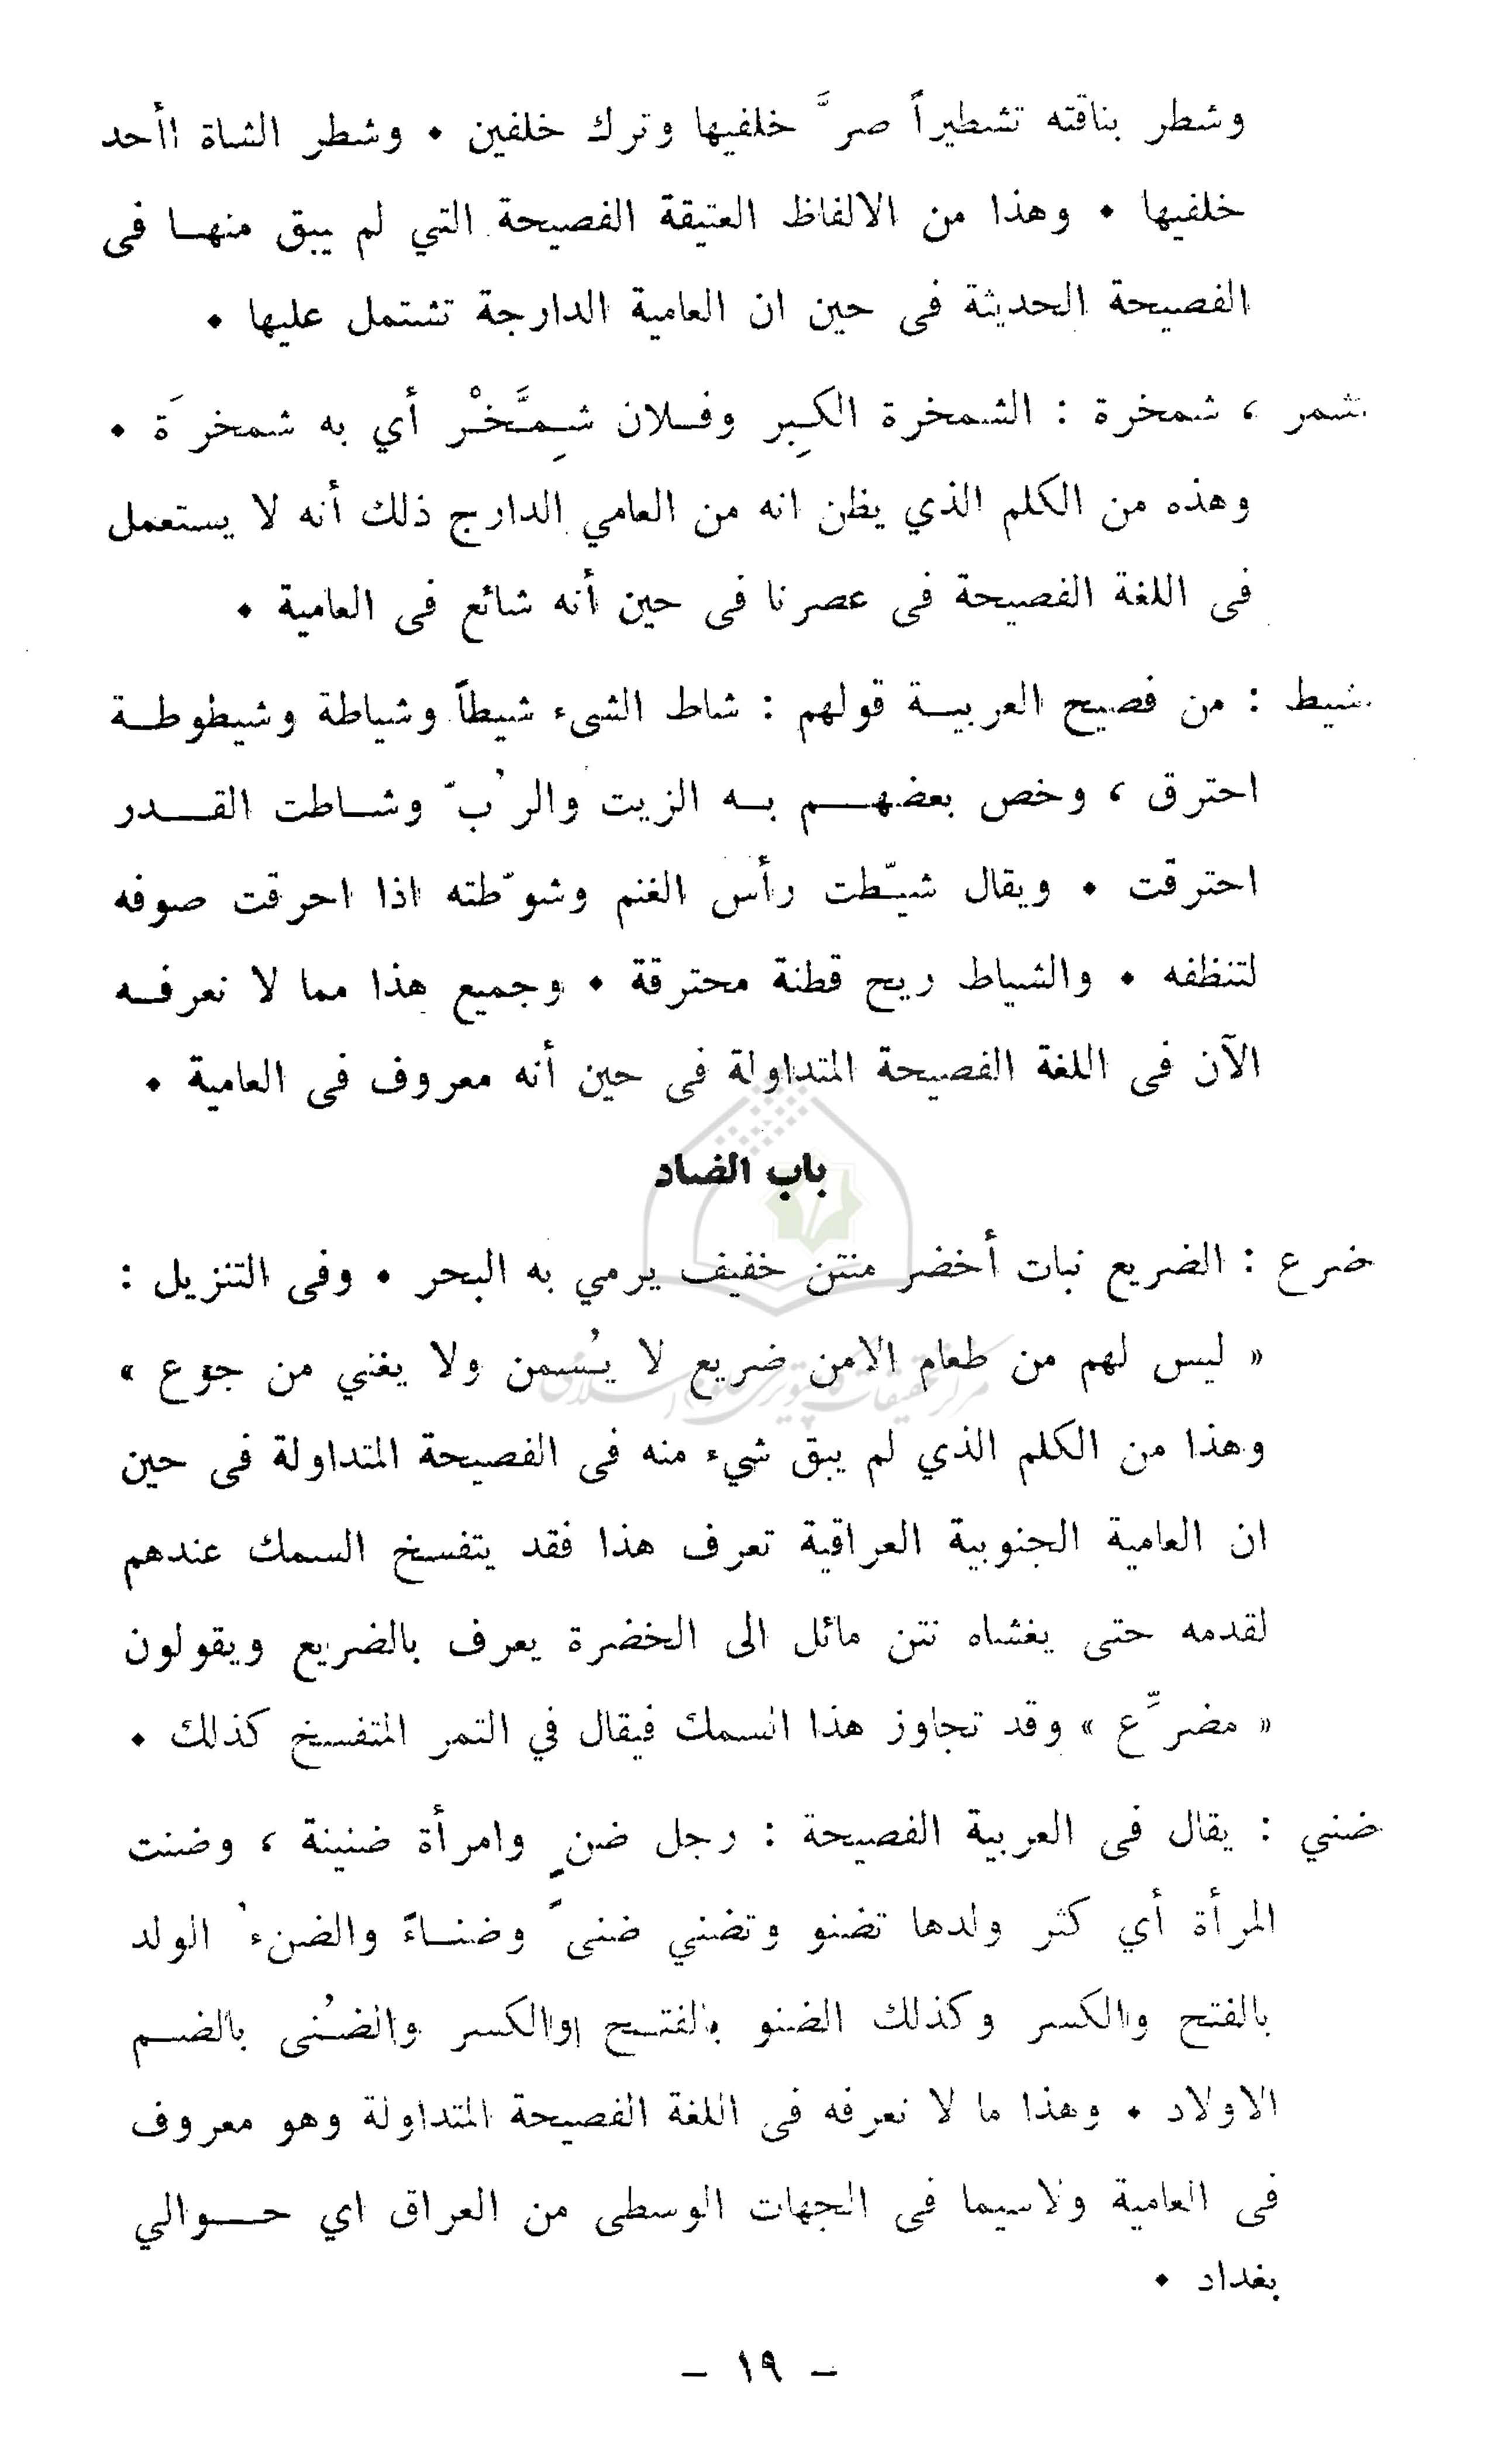 وشطر بناقته تشطيراً صرَّ خلفيها وترك خلفين • وشطر الشاة أأحد
خلفيها • وهذا من الالفاظ العتيقة الفصيحة التي لم يبق منهـا فى
الفصيحة الحديثة فى حين ان العامية الدارجة تشتمل عليها •
شمر ، شمخرة : الشمخرة الكِبر وفـلان شِـمَّخْر أي به شمخرَة •
وهذه من الكلم الذي يظن انه من العامي الدارج ذلك أنه لا يستعمل
فى اللغة الفصيحة فى عصرنا فى حين أنه شائع فى العامية •
شيط : من فصيح العربيـة قولهم : شاط الشىء شيطاً وشياطة وشيطوطـة
احترق ، وخص بعضهـم بـه الزيت والرُبّ وشـاطت القـدر
احترقت • ويقال شيّطت رأس الغنم وشوّطته اذا احرقت صوفه
لتنظفه • والشياط ريح قطنة محترقة • وجميع هذا مما لا نعرفـه
الآن فى اللغة الفصيحة المتداولة فى حين أنه معروف فى العامية •
باب الضاد
ضرع : الضريع نبات أخضر منتن خفيف يرمي به البحر • وفى التنزيل :
« ليس لهم من طعام الامن ضريع لا يُسمن ولا يغني من جوع »
وهذا من الكلم الذي لم يبق شيء منه فى الفصيحة المتداولة فى حين
ان العامية الجنوبية العراقية تعرف هذا فقد يتفسخ السمك عندهم
لقدمه حتى يغشاه نتن مائل الى الخضرة يعرف بالضريع ويقولون
« مضرِّع » وقد تجاوز هذا السمك فيقال في التمر المتفسخ كذلك •
ضني : يقال فى العربية الفصيحة : رجل ضنٍ وامرأة ضنينة ، وضنت
المرأة أي كثر ولدها تضنو وتضني ضنىً وضنـاءً والضنءُ الولد
بالفتح والكسر وكذلك الضنو بالفتـح والكسر والضُنى بالضـم
الاولاد • وهذا ما لا نعرفه فى اللغة الفصيحة المتداولة وهو معروف
فى العامية ولاسيما فى الجهات الوسطى من العراق اي حـوالي
بغداد •
– ١٩ –